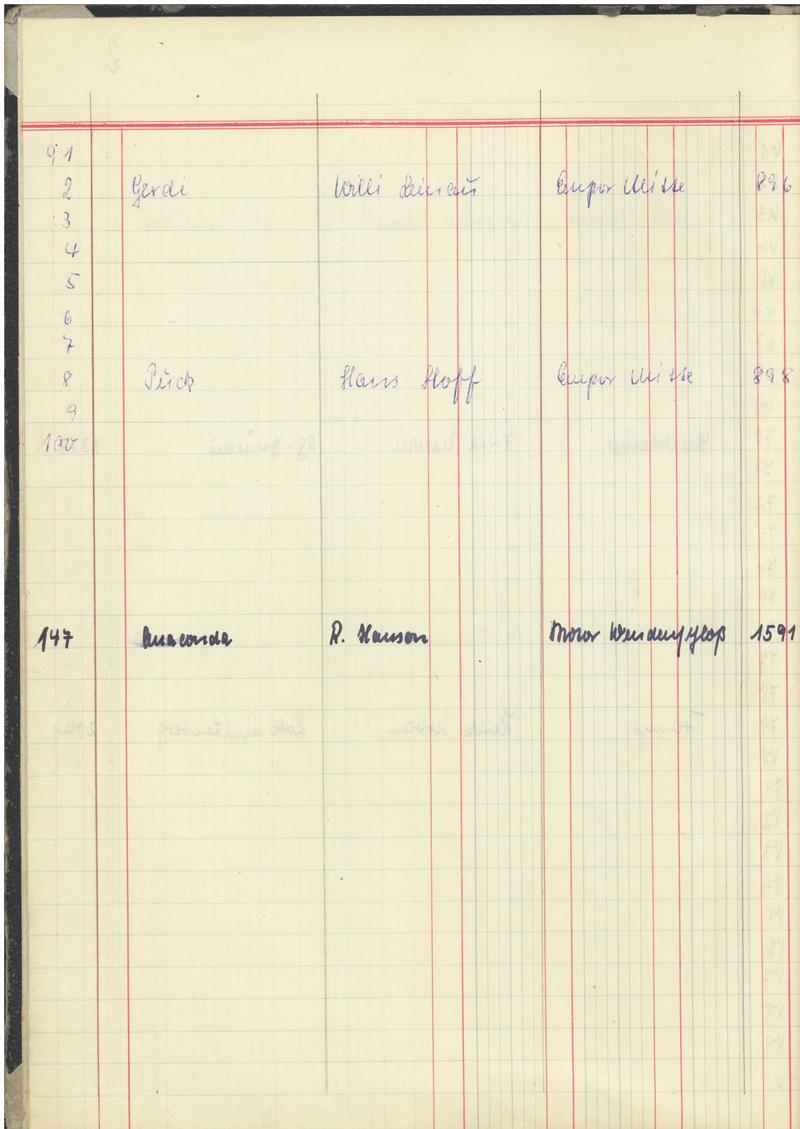 91
2 Gerdi Willi Leinau Empor Mitte 896
3
4
5
6
7
8 Puck Hans Hoff Empor Mitte 898
9
100
147 Anaconda R. Hanson Motor Wendenschloß 1591